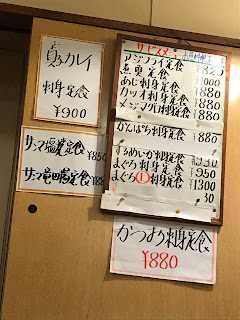 真カレイ
刺身定食
¥900
サンマ塩焼定食 ¥850
サンマ竜田揚定食
サービスメニュー
アジフライ定食 ¥825
魚真定食
あじ刺身定食
カツオ刺身定食 ¥880
メジマグロ刺身定食 ¥880
かんぱち刺身定食 ¥880
するめいか刺身定食
まぐろ刺身定食 ¥950
まぐろ 刺身定食 ¥1300
かつお刺身定食
¥880